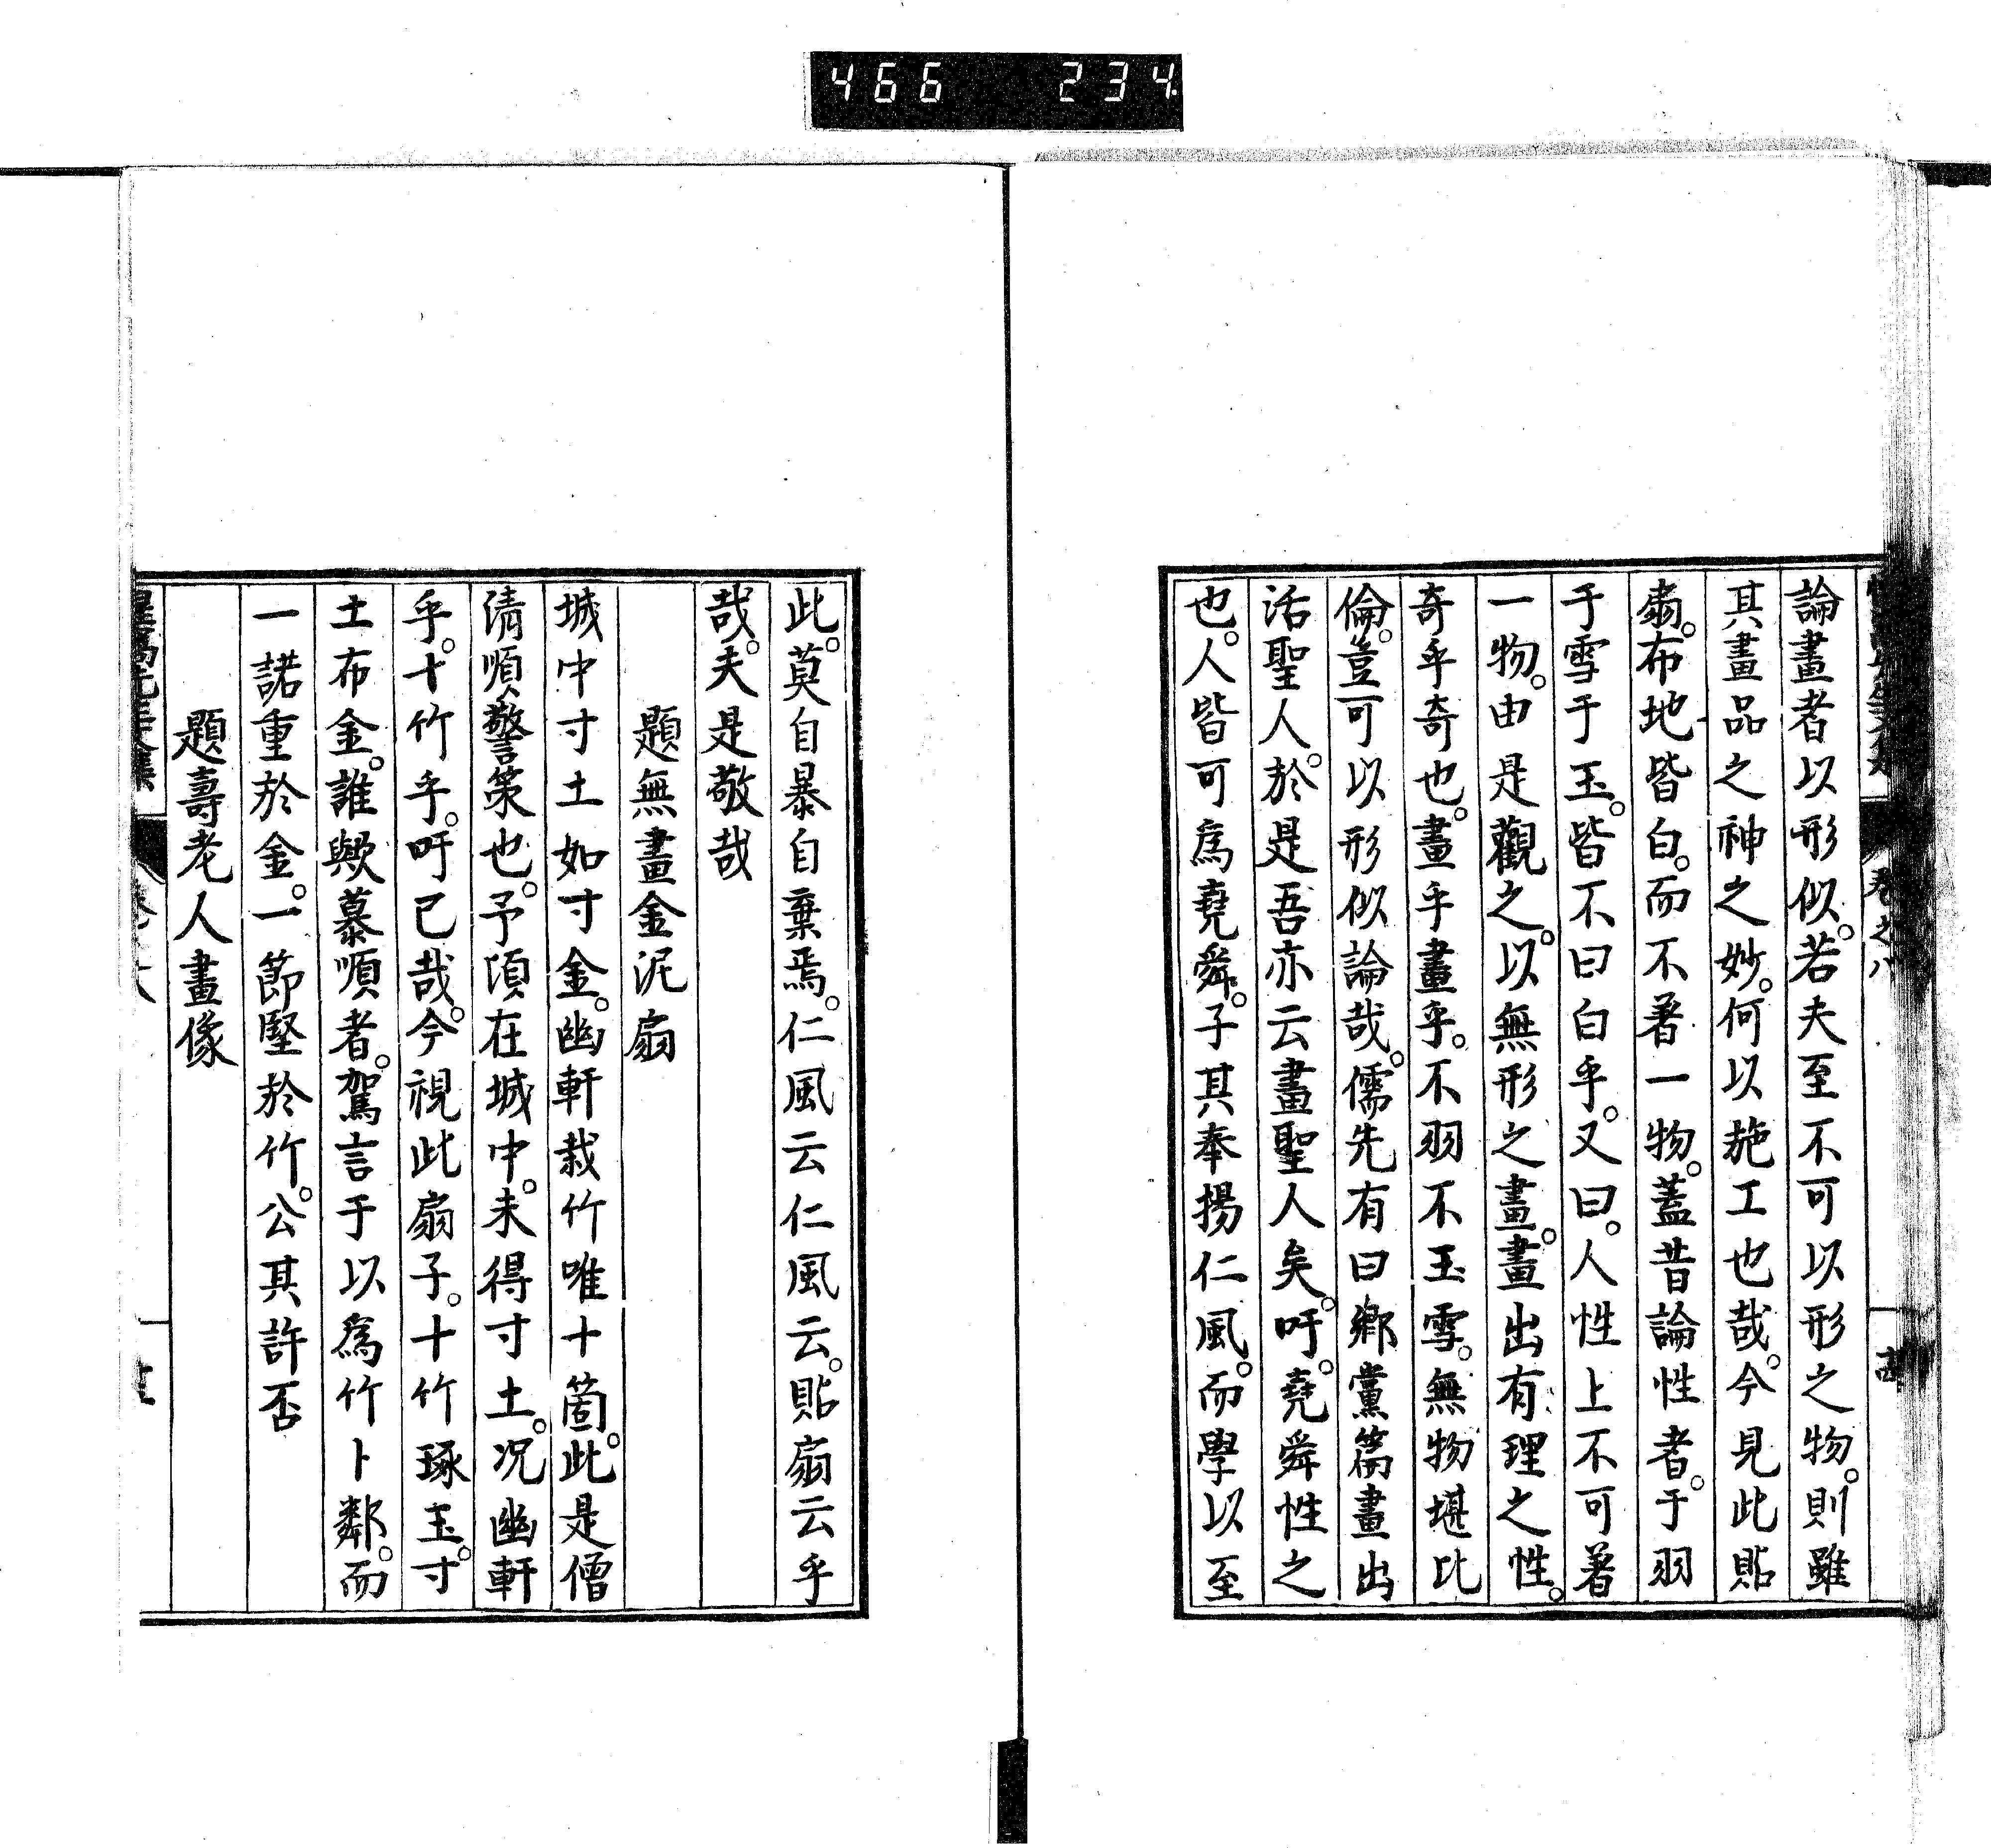 466 234
卷之八
論畫者以形似。若夫至不可以形之物。則雖
其畫品之神之妙。何以施工也哉。今見此貼
扇。布地皆白。而不著一物。蓋昔論性者。于羽
于雪于玉。皆不曰白乎。又曰。人性上不可著
一物。由是觀之。以無形之畫。畫出有理之性。
奇乎奇也。畫乎畫乎。不羽不玉雪。無物堪比
倫。豈可以形似論哉。儒先有曰鄉黨篇畫出
活聖人。於是吾亦云畫聖人矣。吁。堯舜性之
也。人皆可為堯舜。子其奉揚仁風。而學以至
此。莫自暴自棄焉。仁風云仁風云。貼扇云乎
哉。夫是敬哉
題無畫金泥扇
城中寸土如寸金。幽軒栽竹唯十箇。此是僧
清順警策也。予須在城中。未得寸土。況幽軒
乎。十竹乎。吁已哉。今視此扇子。十竹琢玉。寸
土布金。誰歟慕順者。駕言于以為竹卜鄰。而
一諾重於金。一節堅於竹。公其許否
題壽老人畫像